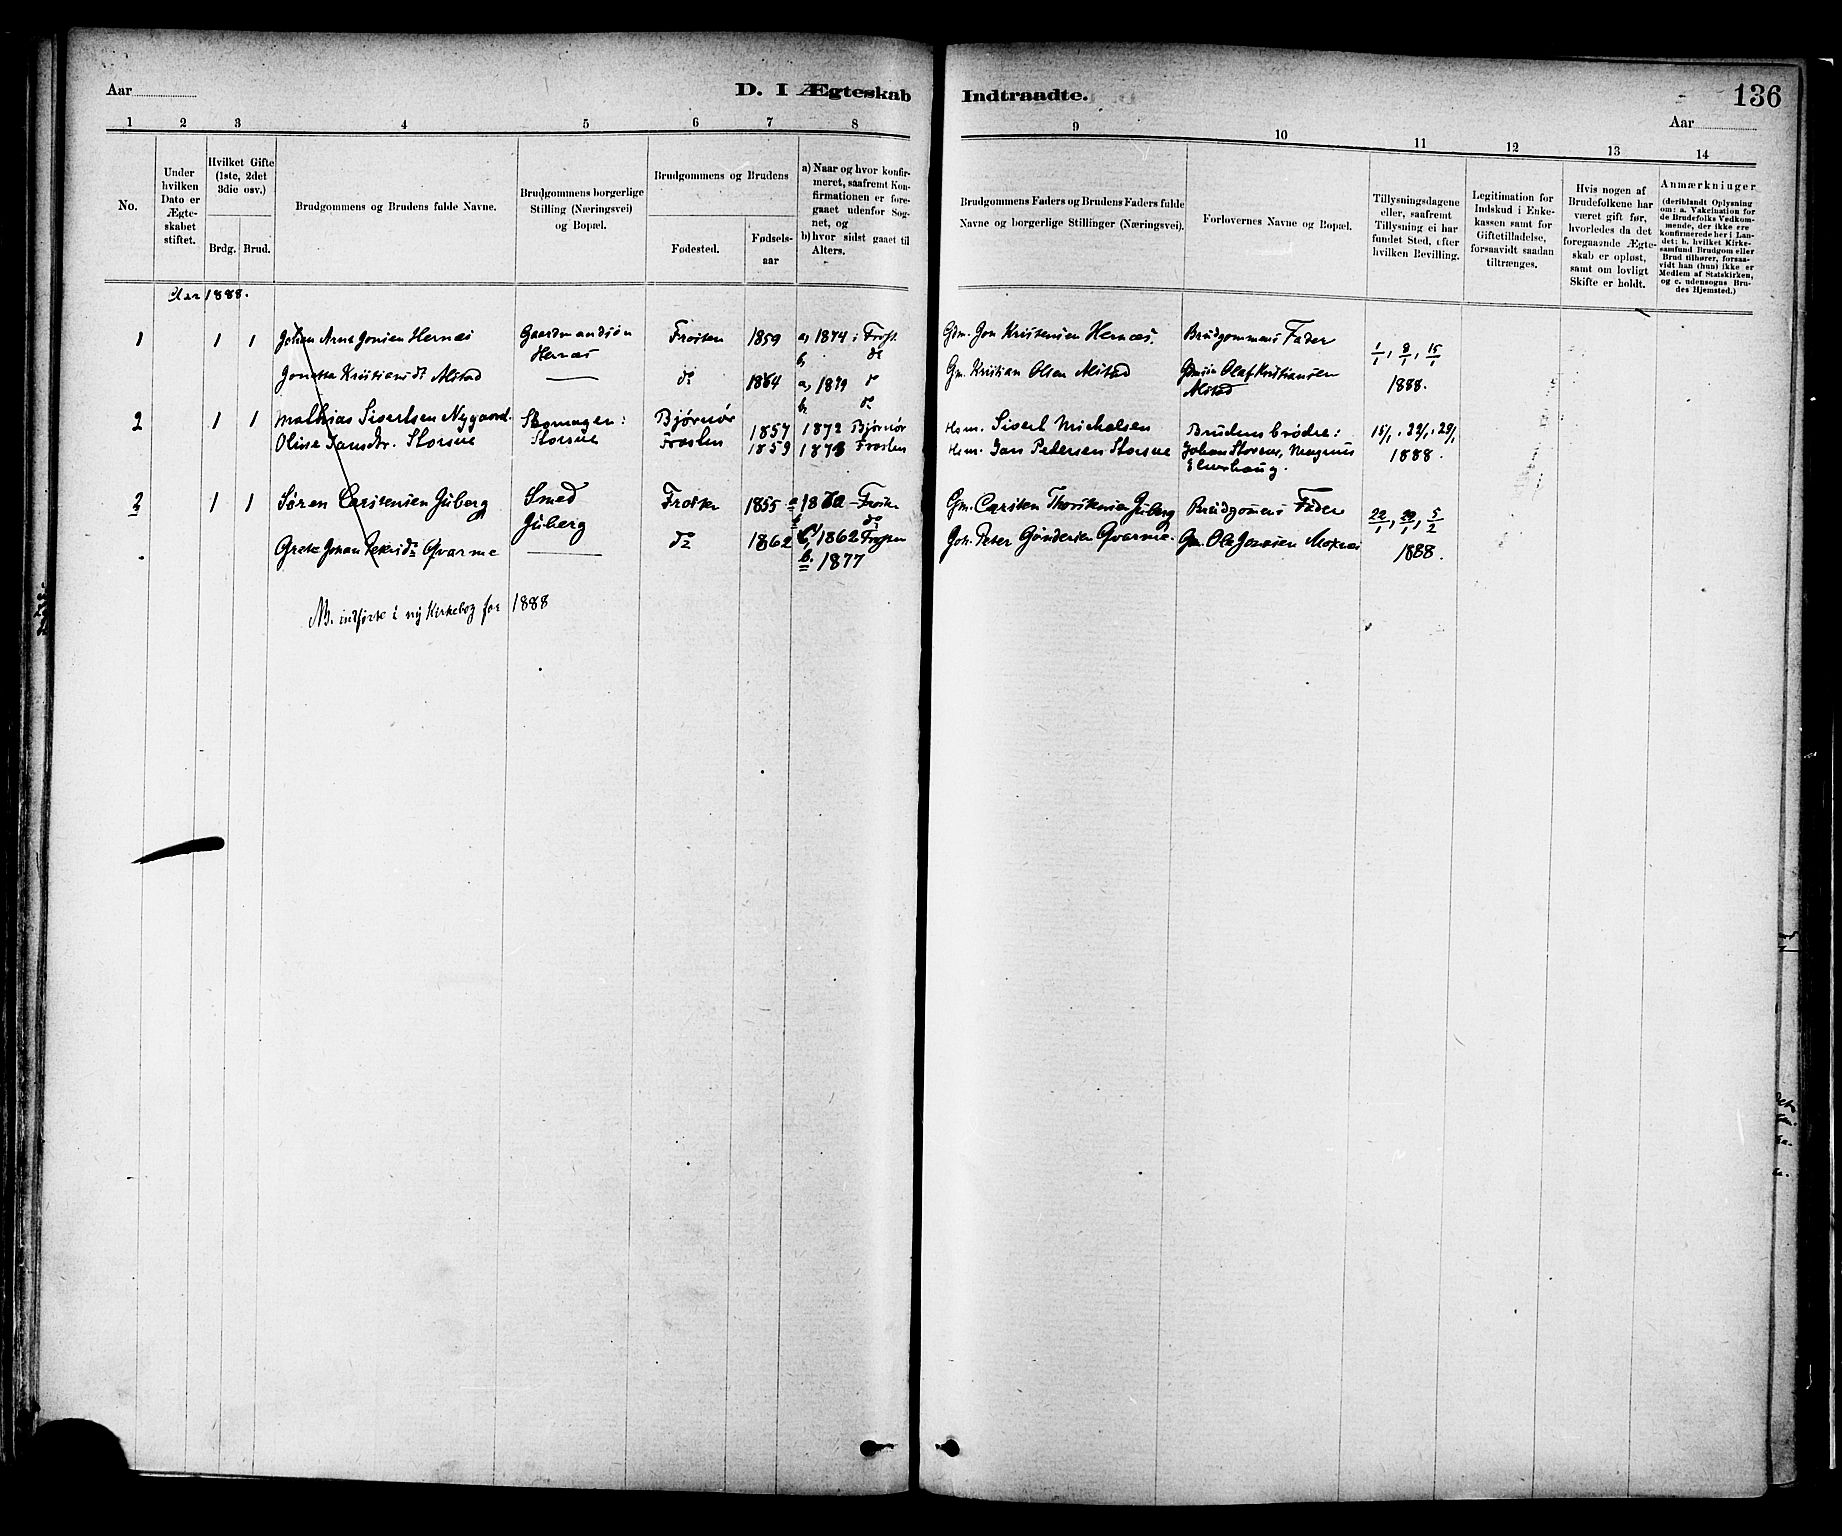 Aar
D. I Ægteskab
Indtraadte.
136
Aar
1 2 3 4 5 6 7 8 9 10 11 12 13 14
No.
Under hvilken Dato er Ægteskabet stiftet.
Hvilket Gifte (1ste, 2det 3die osv.)
Brdg. Brud.
Brudgommens og Brudens fulde Navne.
Brudgommens borgerlige Stilling (Næringsvei) og Bopæl.
Brudgommens og Brudens
Fødested.
Fødsels-aar
a) Naar og hvor konfirmeret, saafremt Konfirmationen er foregaaet udenfor Sognet, og
b) hvor sidst gaaet til Alters.
Brudgommens Faders og Brudens Faders fulde Navne og borgerlige Stillinger (Næringsvei).
Forlovernes Navne og Bopæl.
Tillysningsdagene eller, saafremt Tillysning ei har fundet Sted, efter hvilken Bevilling.
Legitimation for Indskud i Enkekassen samt for Giftetilladelse, forsaavidt saadan tiltrænges.
Hvis nogen af Brudefolkene har været gift før, hvorledes da det foregaaende Ægteskab er opløst, samt om lovligt Skifte er holdt.
Anmærkninger (deriblandt Oplysning om: a. Vakcination for de Brudefolks Vedkommende, der ikke ere konfirmerede her i Landet; b. hvilket Kirkesamfund Brudgom eller Brud tilhører, forsaavidt han (hun) ikke er Medlem af Statskirken, og c. udensogns Brudes Hjemsted.)
Aar 1888.
1 1 1 Johan Arnt Jonsen Hernæs Gaardmandsøn Frosten 1859 a, 1874 i Frost. Gdm. Jon Kristensen Hernæs. Brudgommens Fader 1/1, 8/1, 15/1
Hernæs b, do
Jonetta Kristiansdt Alstad — do 1864 a, 1879 do Gm. Kristian Olsen Alstad Gdmsøn Olaf Kristiansen 1888.
b, do Alstad
2 1 1 Mathias Sivertsen Nygaard. Skomager: Bjørnør 1857 1872 Bjørnør Hsm. Sivert Michelsen Brudens brødre: 15/1, 22/1, 29/1
Oline Jansdtr. Storsue Storsue Frosten 1859 1873 Frosten Hsm. Jan Petersen Storsue Johan Storsue, Magnus 1888.
3 1 1 Søren Carstensen Juberg Smed Frosten 1855 a 1870 Frosten Gm. Carsten Juberg Brudgomens Fader 22/1, 29/1, 5/2
Juberg b do
Grete Johan Petersdr Qvarme — do 1862 1862 Joh. Peter Gundersen Qvarme. Gm. Ole Jonsen Moxnes 1888.
b. 1877
NB. indførte i ny Kirkebog for 1888